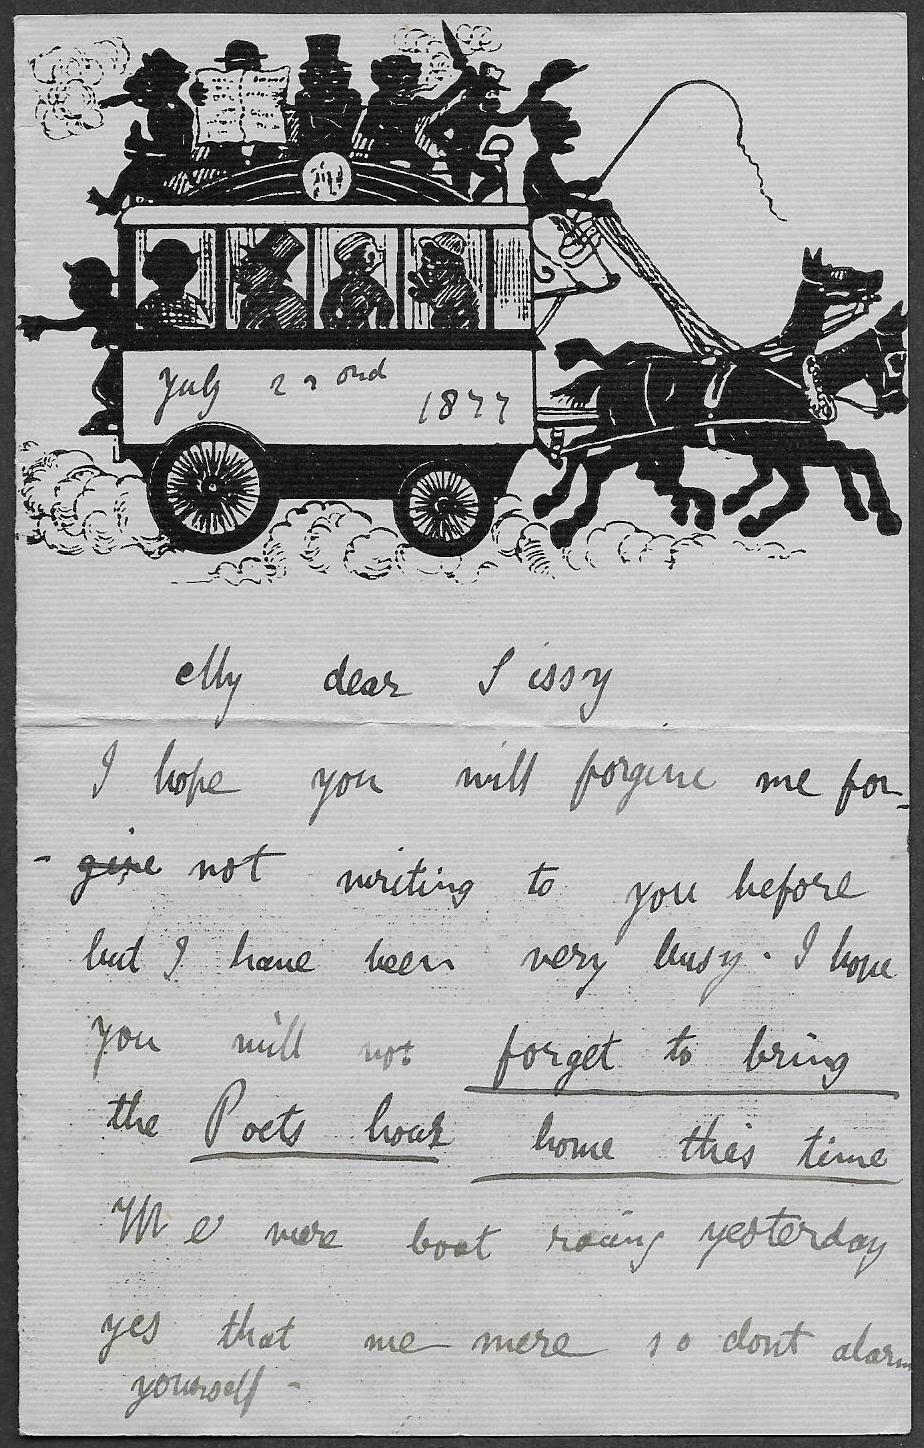 July 22ond
1877
My dear Sissy
I hope you will forgive me for-
- give not writing to you before
but I have been very busy. I hope
you will not forget to bring
the Poets book home this time
We were boat racing yesterday
yes that we were so dont alarm
yourself -